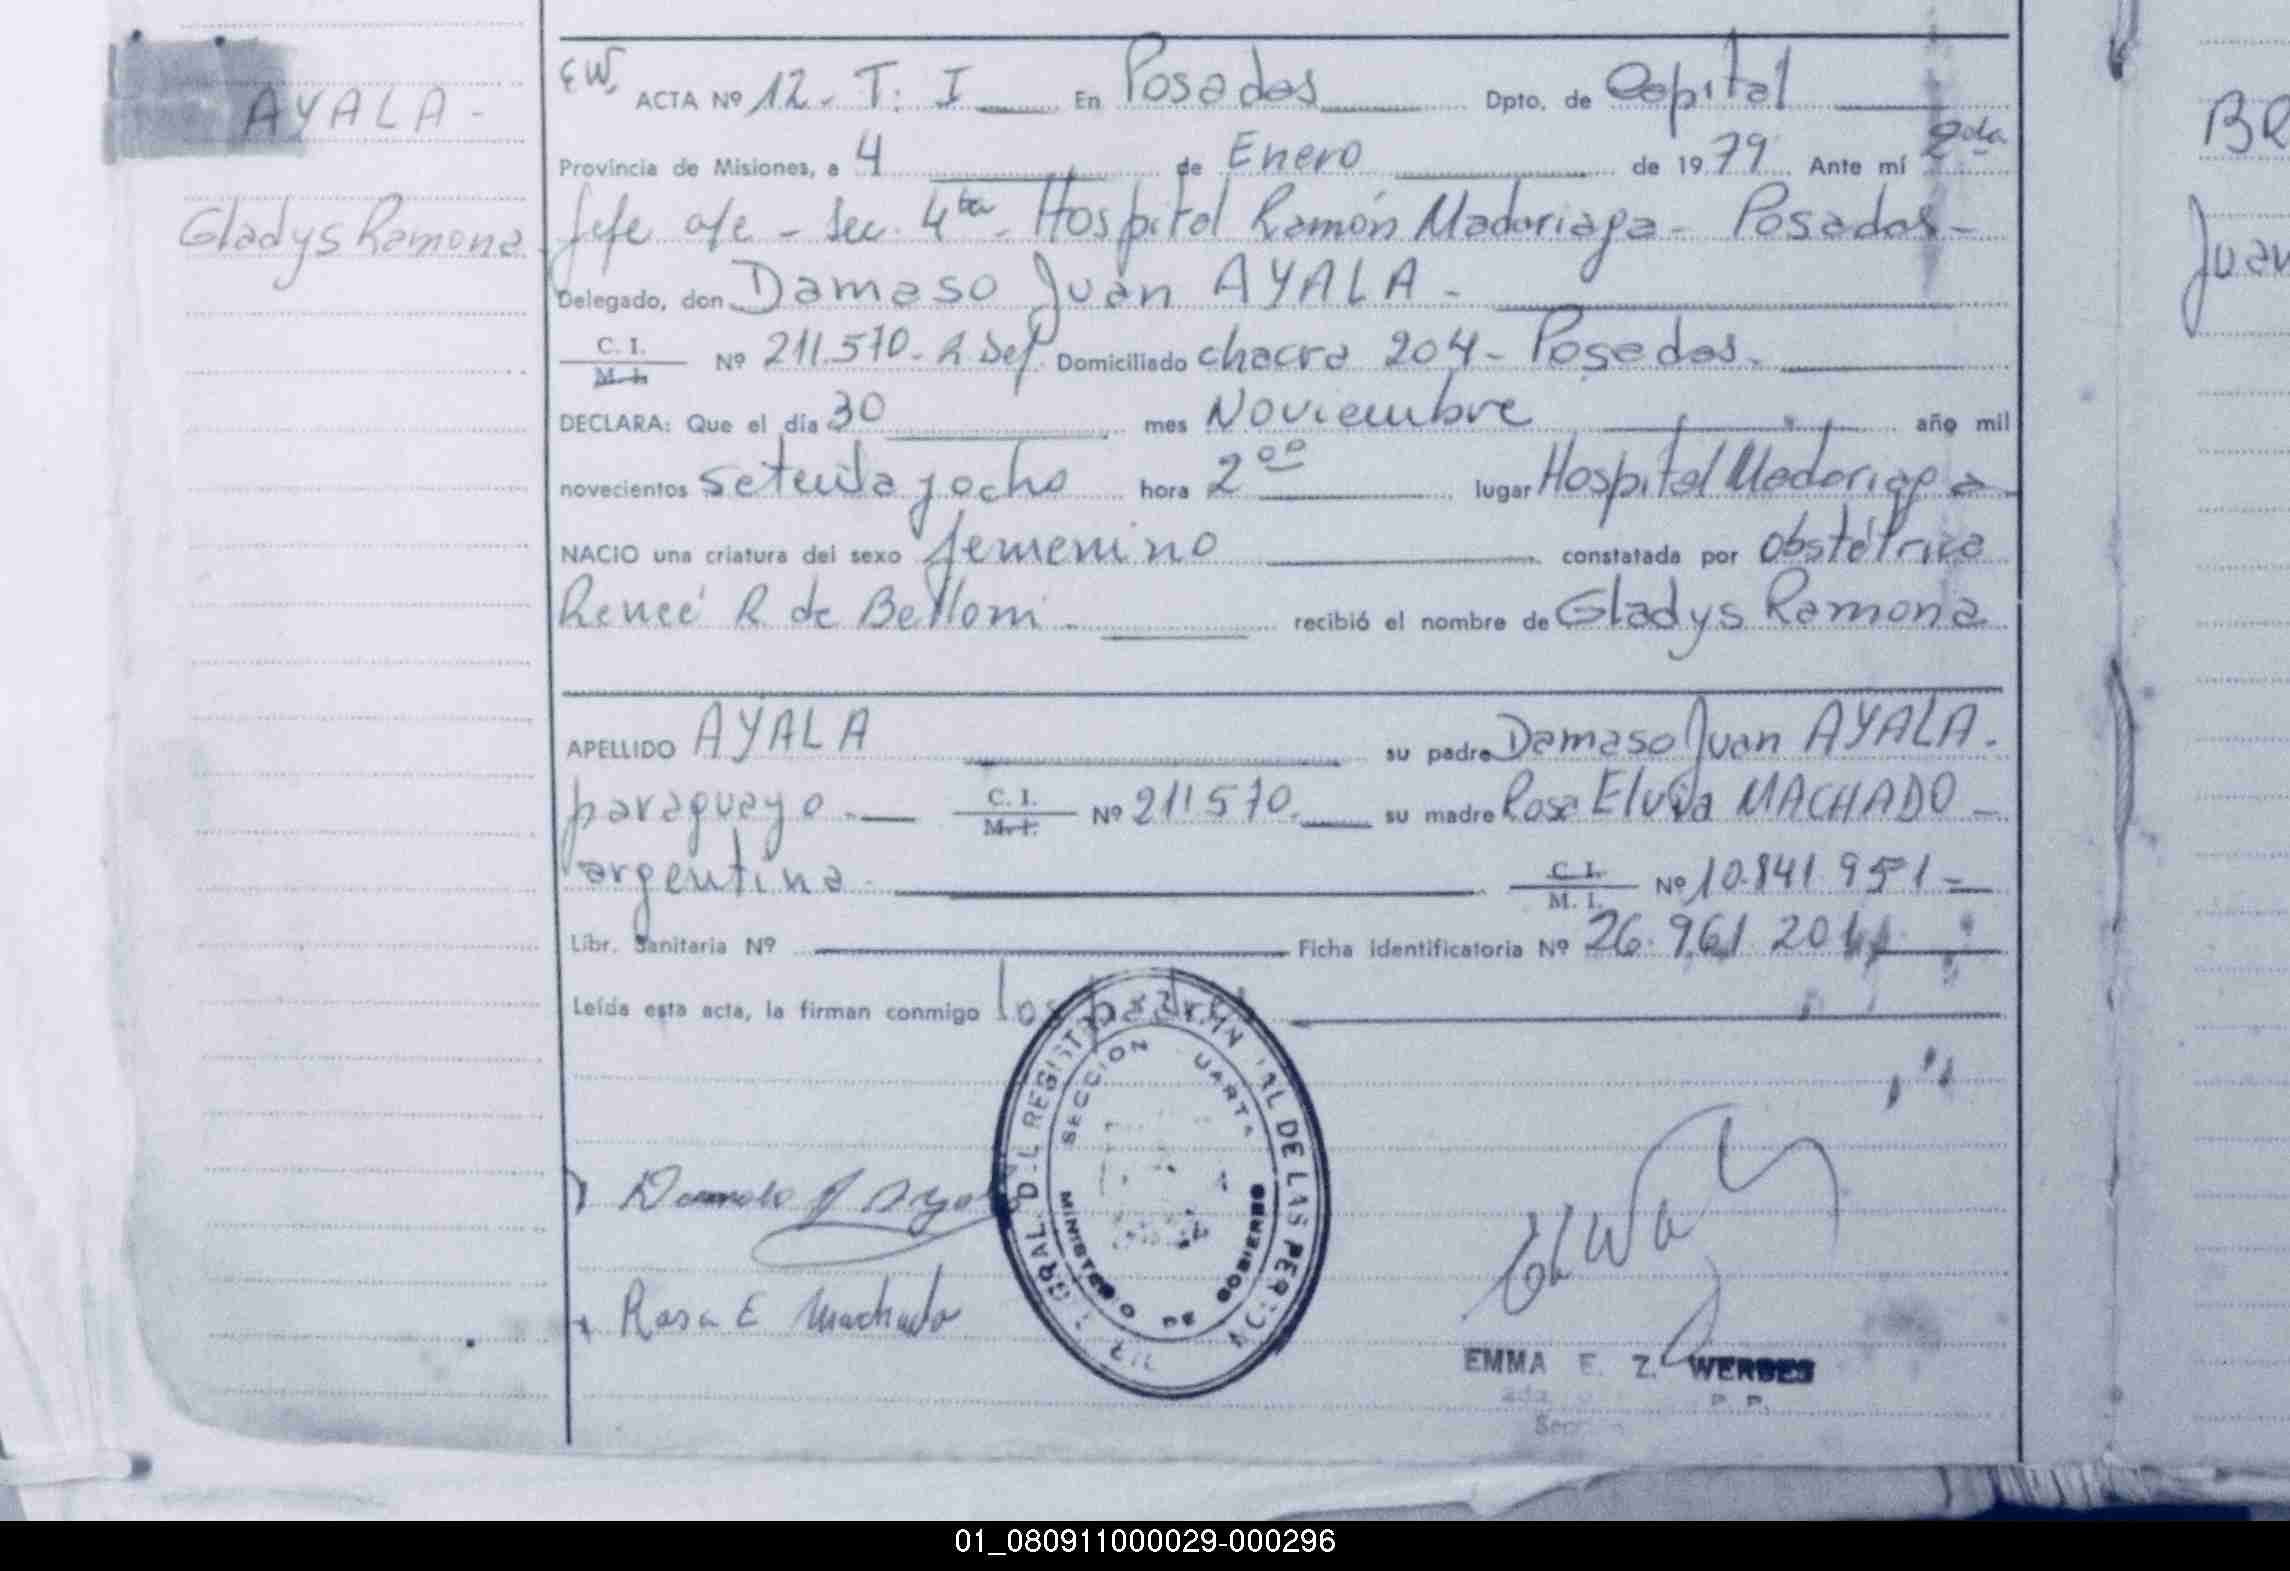 EW. ACTA Nº 12. T: I En Posadas Dpto. de Capital
AYALA -
Provincia de Misiones, a 4 de Enero de 1979. Ante mí 2da
Gladys Ramona
Jefe ofe - Sec. 4ta - Hospital Ramón Madariaga - Posadas -
Delegado, don Damaso Juan AYALA -
C. I. M. I. Nº 211.570. Domiciliado chacra 204 - Posadas.
DECLARA: Que el día 30 mes Noviembre año mil
novecientos setenta y ocho hora 2 00 lugar Hospital Madariaga
NACIO una criatura del sexo femenino constatada por obstétrica
Reneé R de Belloni - recibió el nombre de Gladys Ramona
APELLIDO AYALA su padre Damaso Juan AYALA.
paraguayo. C. I. M. I. Nº 211570. su madre Rosa Elvira MACHADO -
argentina. C. I. M. I. Nº 10.841.951 -
Libr. Sanitaria Nº Ficha Identificatoria Nº 26.961.20
Leída esta acta, la firman conmigo los padres
SECCION UARTA
MINISTERIO DE GOBIERNO
Damaso J Ayala
Rosa E Machado
EMMA E. Z. WERBES
BR
Juan
01_080911000029-000296